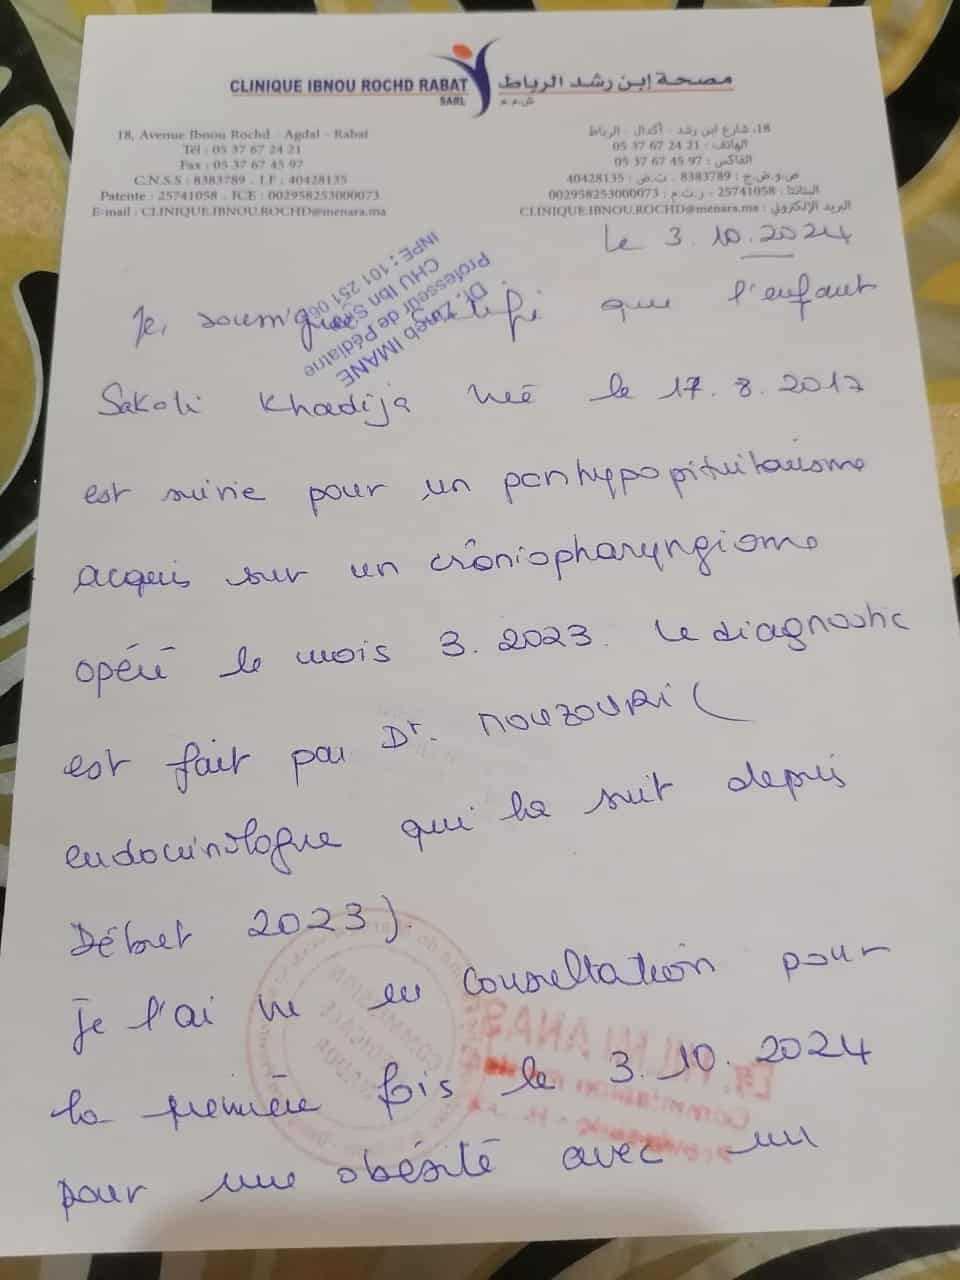 CLINIQUE IBNOU ROCHD RABAT
SARL
مصحة إبن رشد الرباط
ش.م.م
18, Avenue Ibnou Rochd - Agdal - Rabat
Tél : 05 37 67 24 21
Fax : 05 37 67 45 97
C.N.S.S : 8383789 - I.F : 40428135
Patente : 25741058 - ICE : 002958253000073
E-mail : CLINIQUE.IBNOU.ROCHD@menara.ma
18، شارع ابن رشد - أكدال - الرباط
الهاتف : 05 37 67 24 21
الفاكس : 05 37 67 45 97
ص.و.ض.ج : 8383789 - ت.ض : 40428135
البتانتا : 25741058 - ر.ت.م : 002958253000073
البريد الإلكتروني : CLINIQUE.IBNOU.ROCHD@menara.ma
Le 3.10.2024
Dr. Zineb IMANE
Professeur de Pédiatrie
CHU Ibn Sina
INPE : 101 251 06
Je, soussignée certifie que l'enfant
Sakoli Khadija née le 17.8.2017
est suivie pour un panhypopituitarisme
acquis sur un crâniopharyngiome
opéré le mois 3.2023. Le diagnostic
est fait par Dr. NOUZOURI (
endocrinologue qui la suit depuis
Début 2023).
Je l'ai vu en consultation pour
la première fois le 3.10.2024
pour une obésité avec un